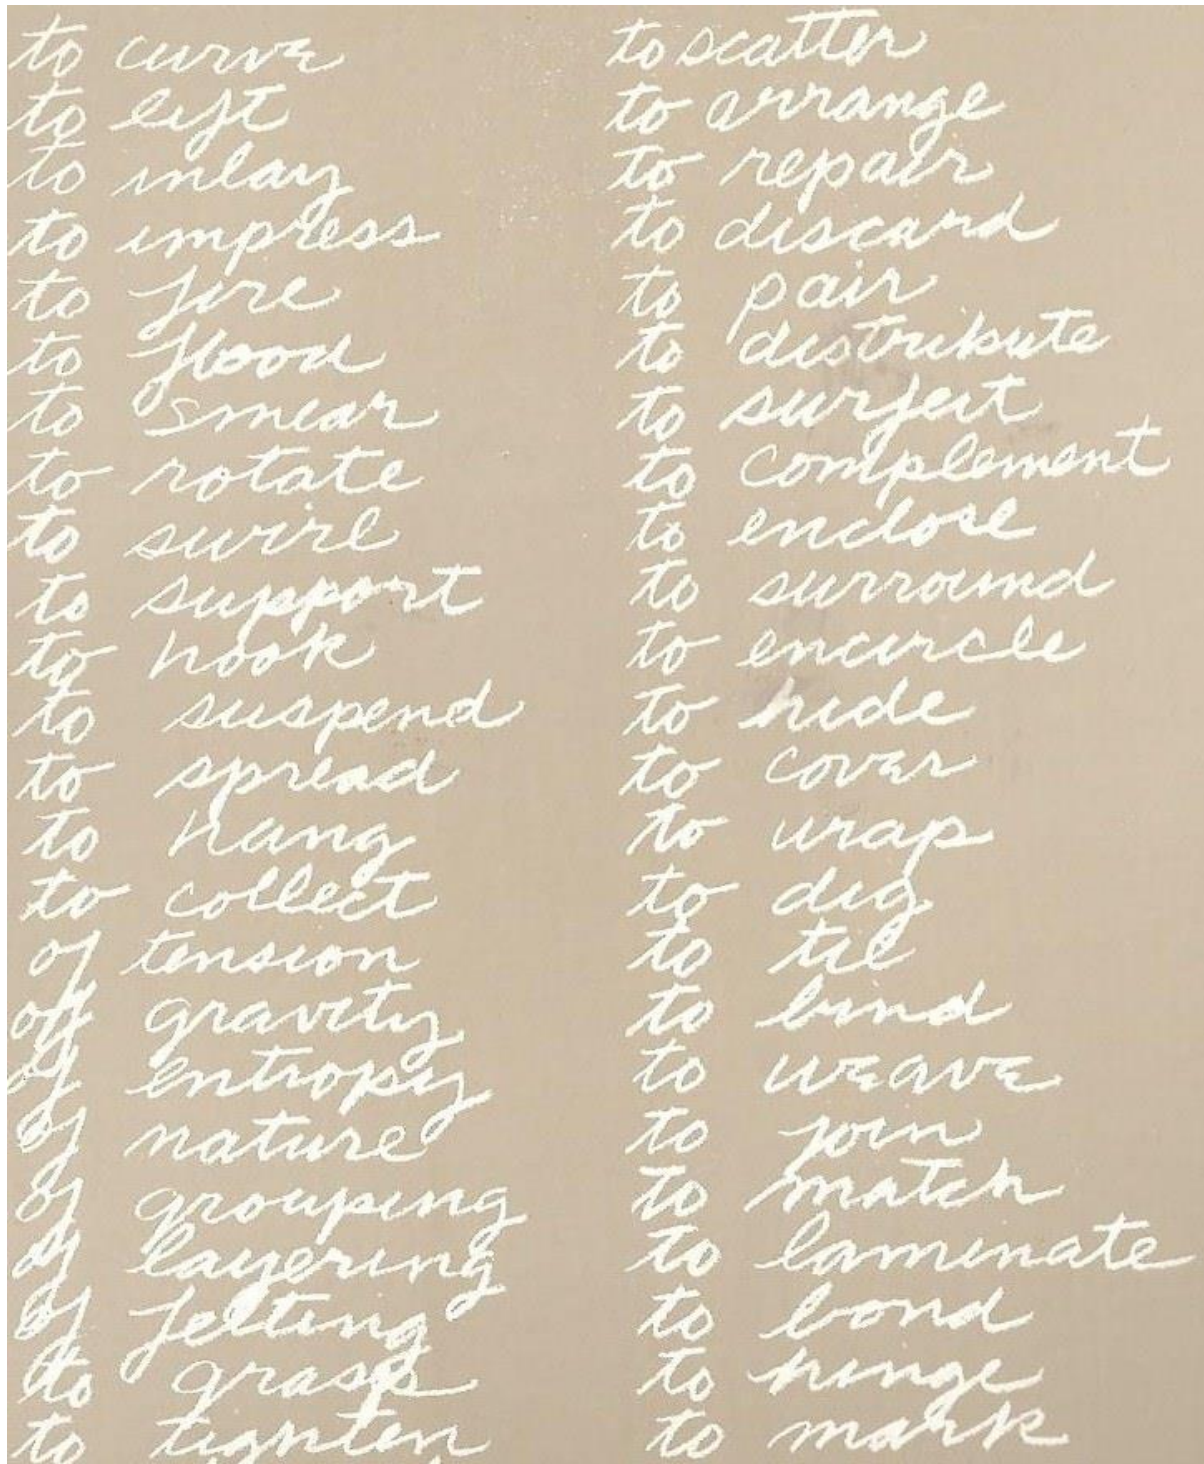 to curve
to lift
to inlay
to impress
to fire
to flood
to smear
to rotate
to swirl
to support
to hook
to suspend
to spread
to hang
to collect
of tension
of gravity
of entropy
of nature
of grouping
of layering
of felting
to grasp
to tighten
to scatter
to arrange
to repair
to discard
to pair
to distribute
to surfeit
to complement
to enclose
to surround
to encircle
to hide
to cover
to wrap
to dig
to tie
to bind
to weave
to join
to match
to laminate
to bond
to hinge
to mark